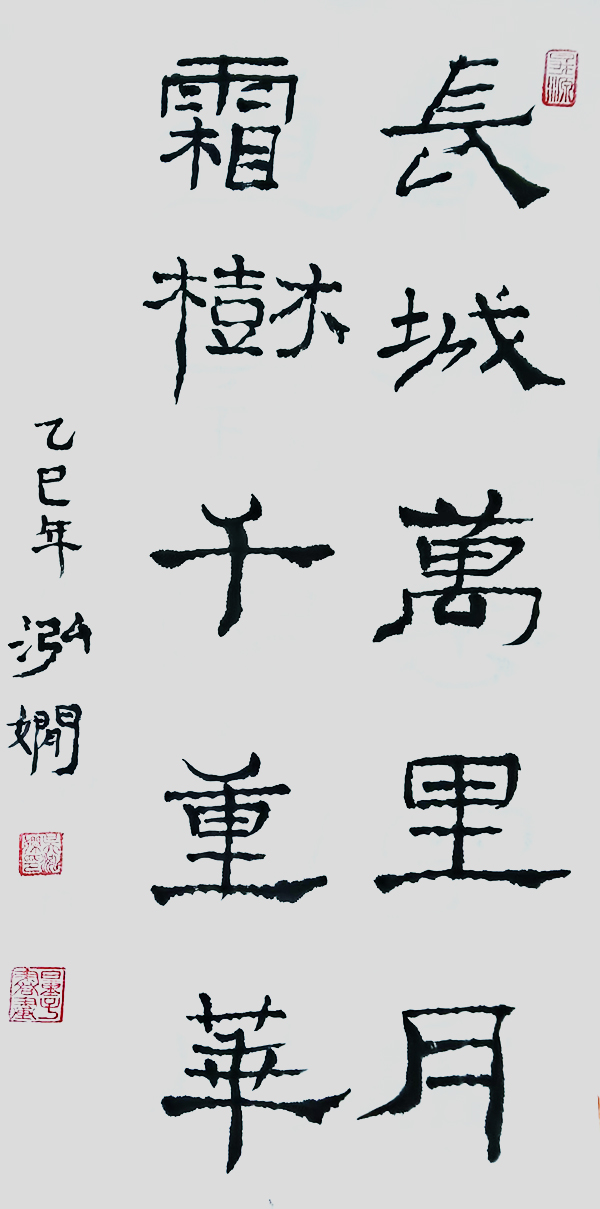 長城萬里月
霜樹千重華
乙巳年泓嫺